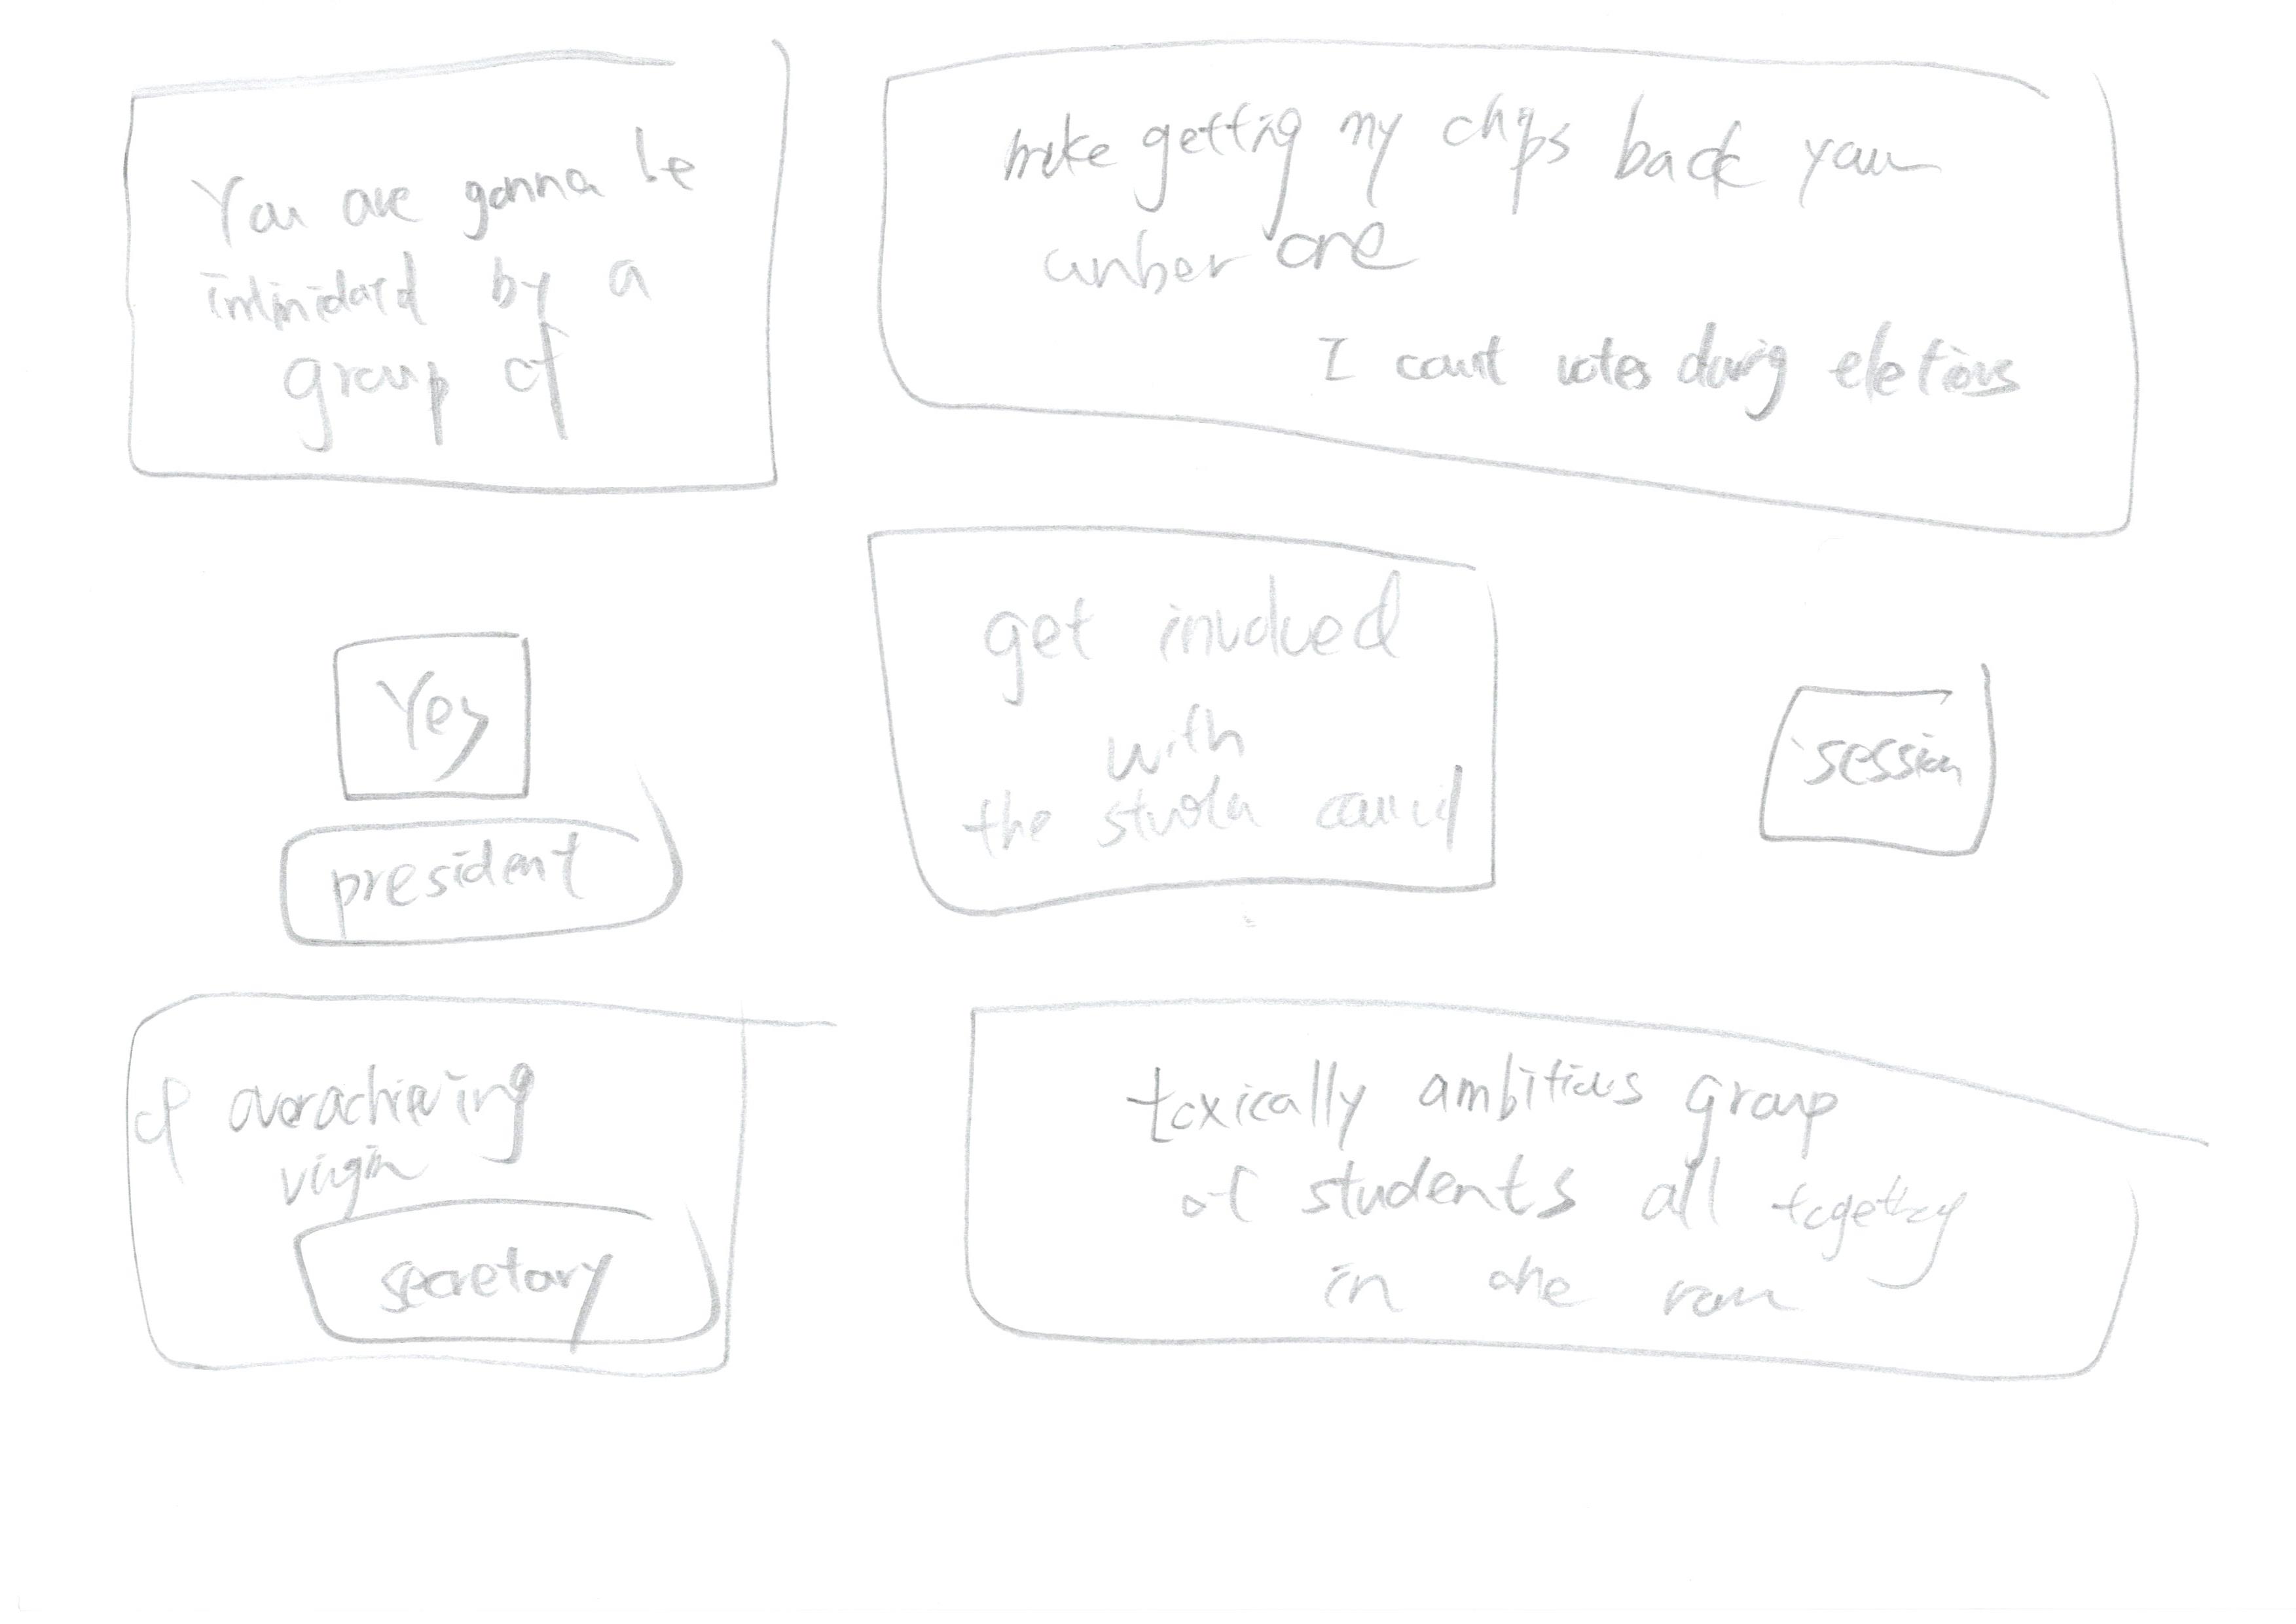 You are gonna be
intimidated by a
group of
make getting my chips back your
number one
I count votes during eletions
Yes
president
get involved
with
the council
session
of overachieving
virgin
secretary
toxically ambitious group
of students all together
in one room